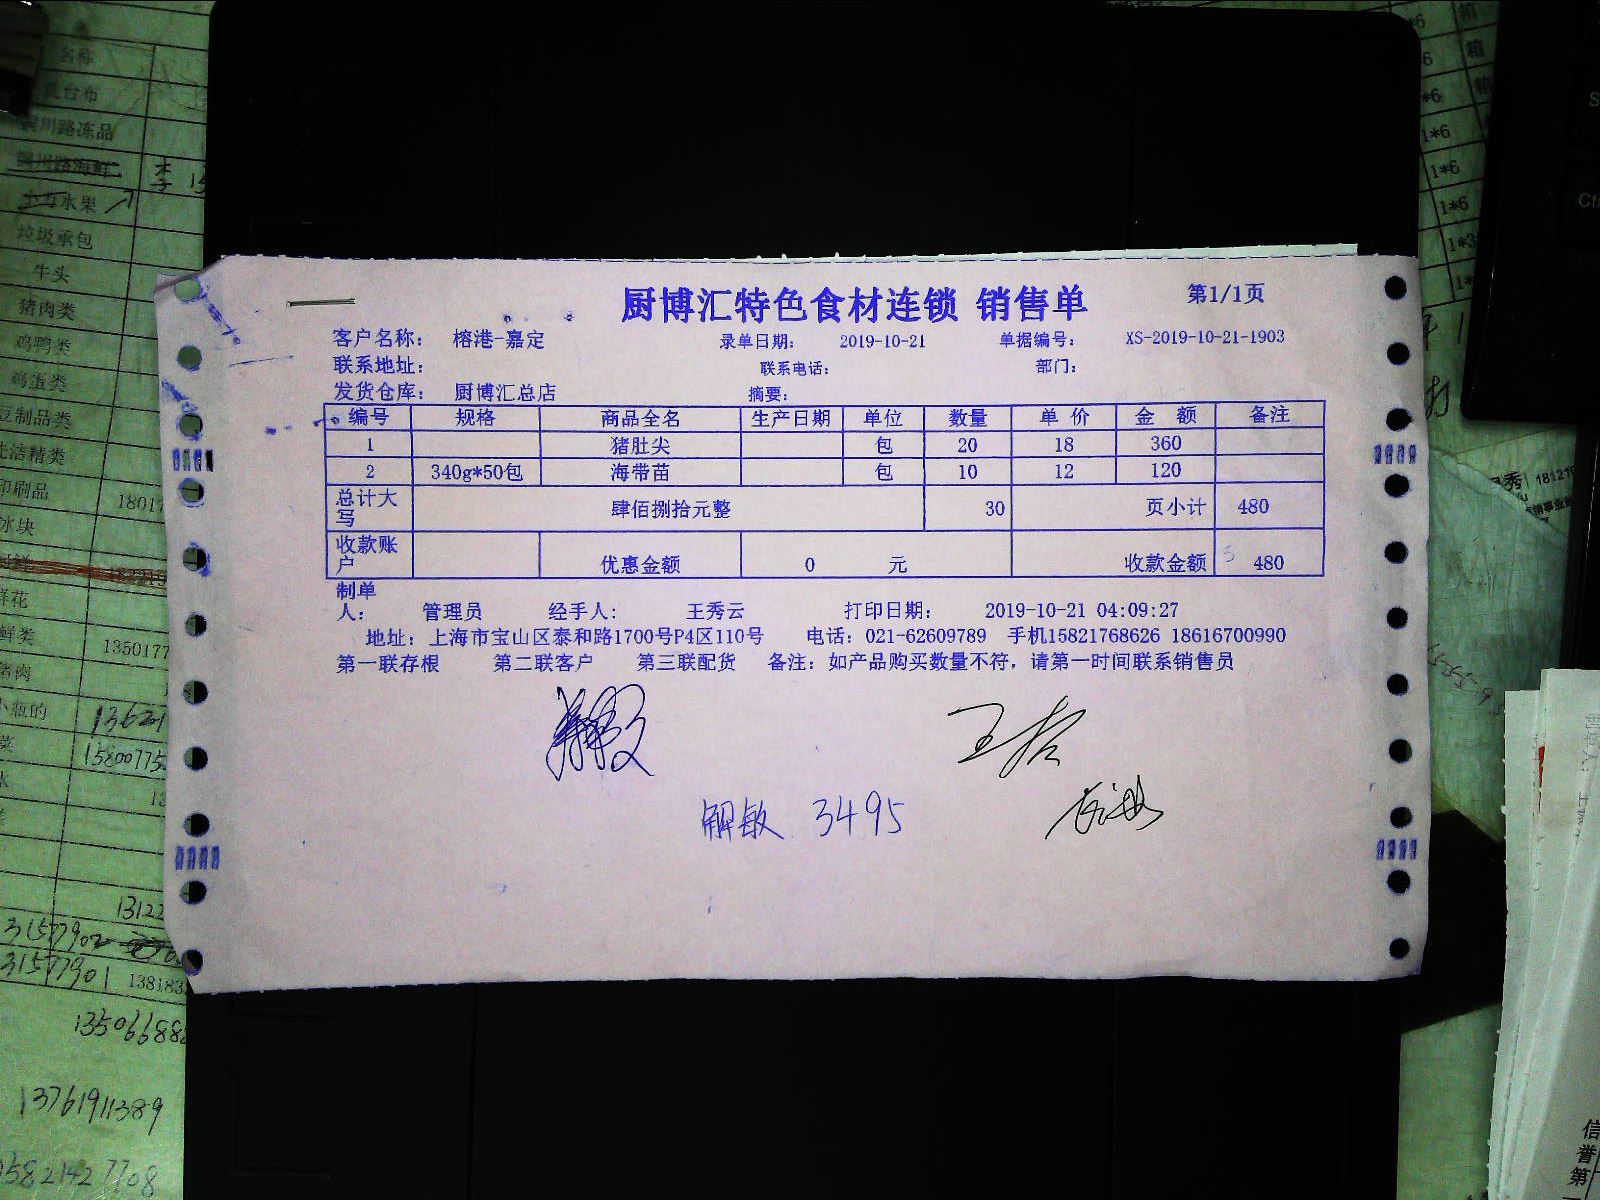 厨博汇特色食材连锁 销售单 第1/1页
客户名称： 榕港-嘉定 录单日期： 2019-10-21 单据编号： XS-2019-10-21-1903
联系地址： 联系电话： 部门：
发货仓库： 厨博汇总店 摘要：
编号 规格 商品全名 生产日期 单位 数量 单 价 金 额 备注
1 猪肚尖 包 20 18 360
2 340g*50包 海带苗 包 10 12 120
总计大写 肆佰捌拾元整 30 页小计 480
收款账户 优惠金额 0 元 收款金额 480
制单人： 管理员 经手人： 王秀云 打印日期： 2019-10-21 04:09:27
地址：上海市宝山区泰和路1700号P4区110号 电话：021-62609789 手机15821768626 18616700990
第一联存根 第二联客户 第三联配货 备注：如产品购买数量不符，请第一时间联系销售员
解敏 3495
名称
台布
铜川路冻品
铜川路海鲜 李
水果
垃圾承包
牛头
猪肉类
鸡鸭类
鸡蛋类
豆制品类
洗洁精类
印刷品 18017
冰块
鲜花
鲜类 1350177
猪肉
小瓶的 13621
菜 15800775
水
13122
31577902
31577901 1381832
13506688
13761911389
15821427708
1*6
1*6
1*6
1*3
信
誉
第